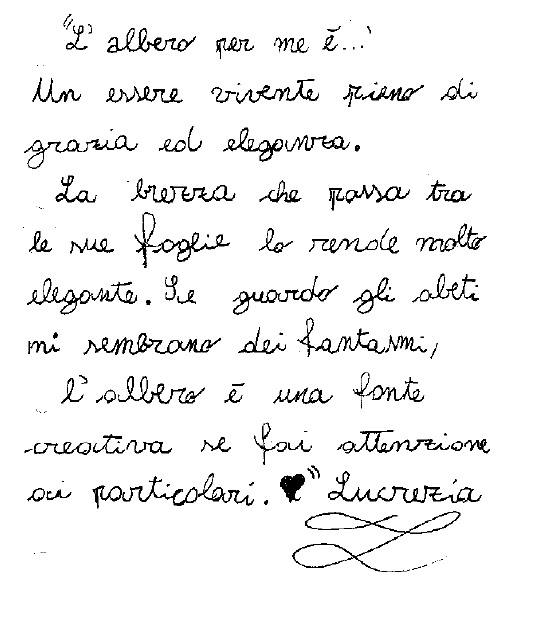 "L'albero per me è..."
Un essere vivente pieno di
grazia ed eleganza.
La brezza che passa tra
le sue foglie lo rende molto
elegante. Se guardo gli abeti
mi sembrano dei fantasmi,
l'albero è una fonte
creativa se fai attenzione
ai particolari. ♥" Lucrezia